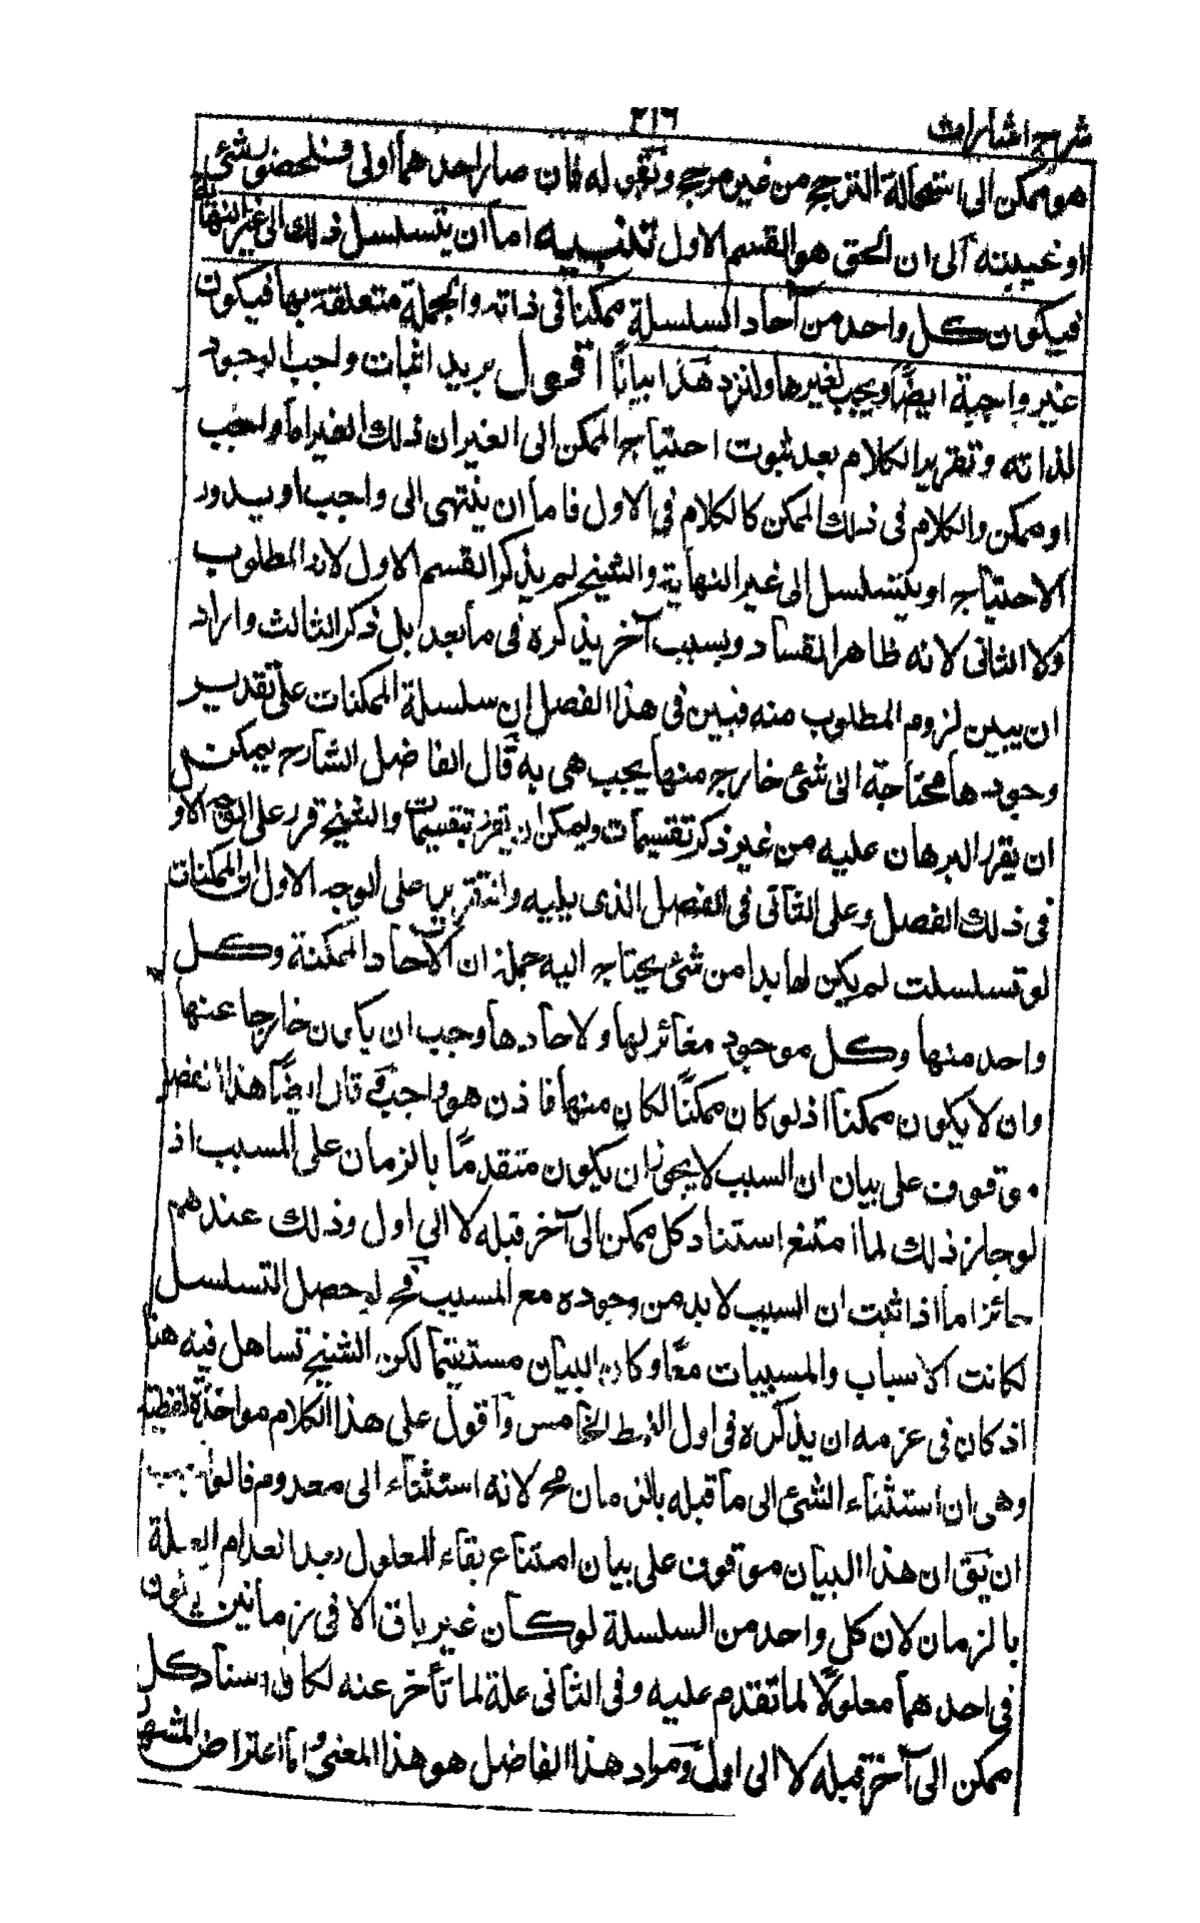 شرح اشارات ٢١٦
هو ممكن الى استحالة الترجح من غير مرجح وبقوله فان صار احدهما اولى فلحضور شئ
او غيبته الى ان الحق هو القسم الاول تنبيه اما ان يتسلسل ذلك الى غير النهاية
فيكون كل واحد من آحاد السلسلة ممكنا فى ذاته والجملة متعلقة بها فيكون
غير واجبة ايضًا ويجب لغيرها ولنزد هذا بيانًا اقول يريد اثبات واجب الوجود
لذاته وتقرير الكلام بعد ثبوت احتياج الممكن الى الغير ان ذلك الغير اما واجب
او ممكن والكلام فى ذلك الممكن كالكلام فى الاول فاما ان ينتهى الى واجب او يدور
الاحتياج او يتسلسل الى غير النهاية والشيخ لم يذكر القسم الاول لانه المطلوب
ولا الثانى لانه ظاهر الفساد وبسبب آخر يذكره فى ما بعد بل ذكر الثالث واراد
ان يبين لزوم المطلوب منه فبين فى هذا الفصل ان سلسلة الممكنات على تقدير
وجودها محتاجة الى شئ خارج منها يجب هى به قال الفاضل الشارح يمكن
ان يقرر البرهان عليه من غير ذكر تقسيمات ويمكن ان يقرر بتقسيمات والشيخ قرر على الوجه الاول
فى ذلك الفصل وعلى الثانى فى الفصل الذى يليه والتقرير على الوجه الاول ان الممكنات
لو تسلسلت لم يكن لها بدا من شئ يحتاج اليه جملة ان الآحاد الممكنة وكل
واحد منها وكل موجود مغائر لها ولآحادها وجب ان يكون خارجا عنها
وان لا يكون ممكنا اذ لو كان ممكنًا لكان منها فاذن هو واجب وقال ايضًا هذا الفصل
موقوف على بيان ان السبب لا يجوز ان يكون متقدمًا بالزمان على المسبب اذ
لو جاز ذلك لما امتنع استناد كل ممكن الى آخر قبله لا الى اول وذلك عندهم
جائز اما اذا ثبت ان السبب لا بد من وجوده مع المسبب فح لو حصل التسلسل
لكانت الاسباب والمسببات معًا وكان البيان مستقيمًا لكن الشيخ تساهل فيه هنا
اذ كان فى عزمه ان يذكره فى اول النمط الخامس واقول على هذا الكلام مواخذة لفظية
وهى ان استثناء الشئ الى ما قبله بالزمان مح لانه استثناء الى معدوم فالواجب
ان يق ان هذا البيان موقوف على بيان امتناع بقاء المعلول بعد انعدام العلة
بالزمان لان كل واحد من السلسلة لو كان غير باق الا فى زمانين يكون
فى احدهما معلولًا لما تقدم عليه وفى الثانى علة لما تأخر عنه لكان اسناد كل
ممكن الى آخر قبله لا الى اول ومراد هذا الفاضل هو هذا المعنى واما اعتراض المشهور